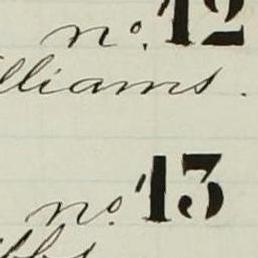 no. 12
lliams.
no. 13